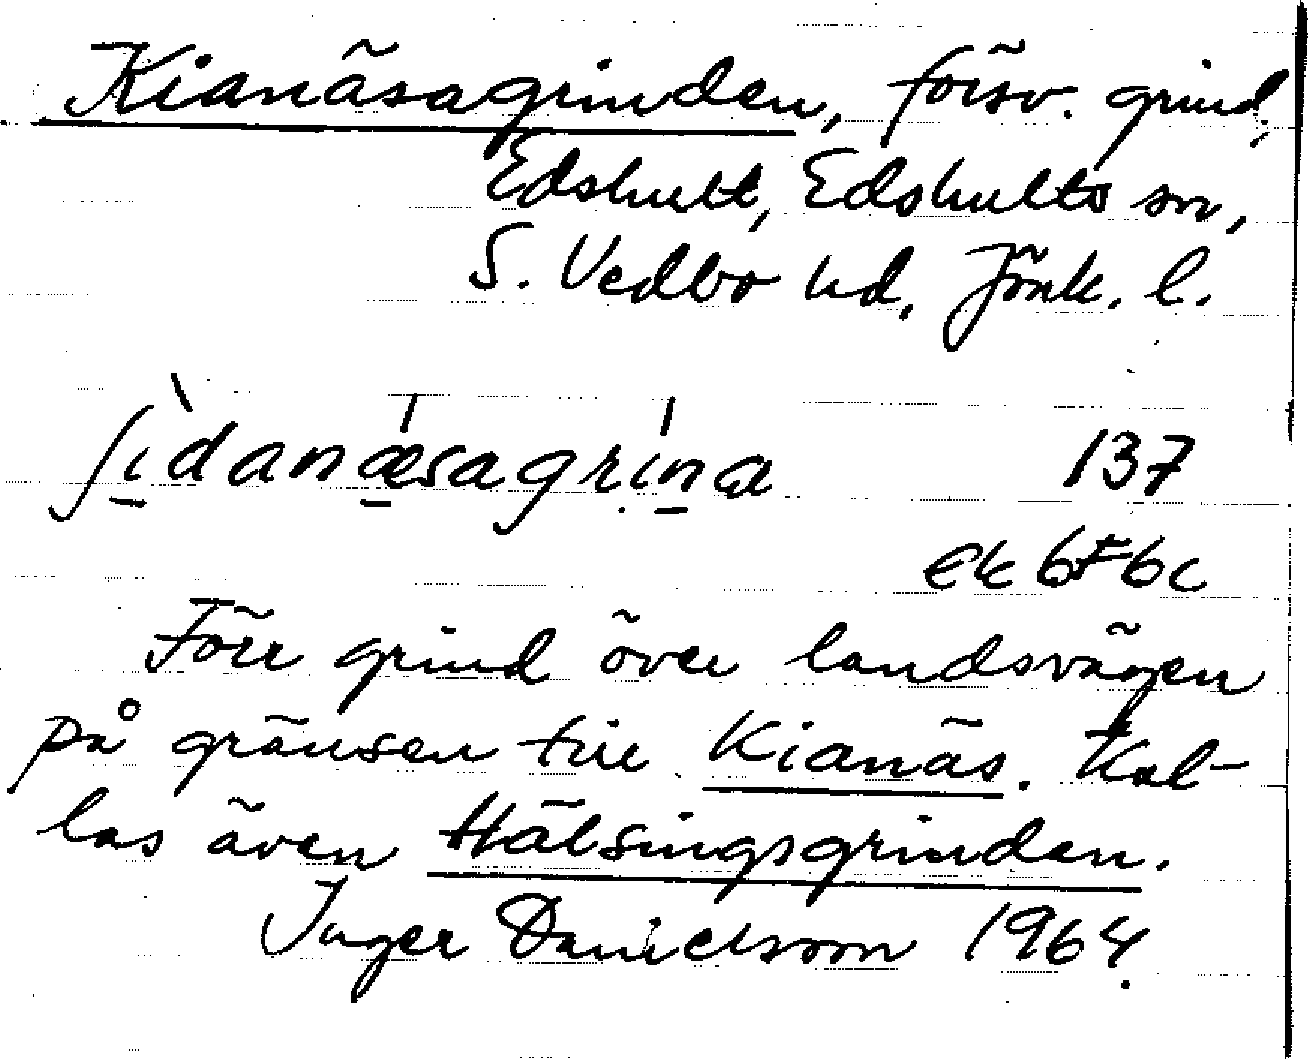 Kianäsagrinden, försv. grind,
Edshult, Edshults sn,
S. Vedbo hd, Jönk. l.
ʃìdanǽsagrína 137
ek 6F6c
Förr grind över landsvägen
på gränsen till Kianäs. Kal-
las även Hälsingsgrinden.
Inger Danielsson 1964.